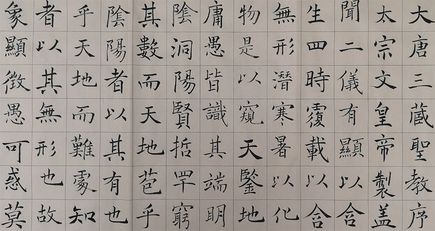 大唐三蔵聖教序
太宗文皇帝製盖
聞二儀有顯以含
生四時覆載以含
無形潛寒暑以化
物是以窺天鑒地
庸愚皆識其端明
陰洞陽賢哲罕窮
其數而天地苞乎
陰陽者以其有也
乎天地而難處知
者以其無形也故
象顯徵愚可惑莫